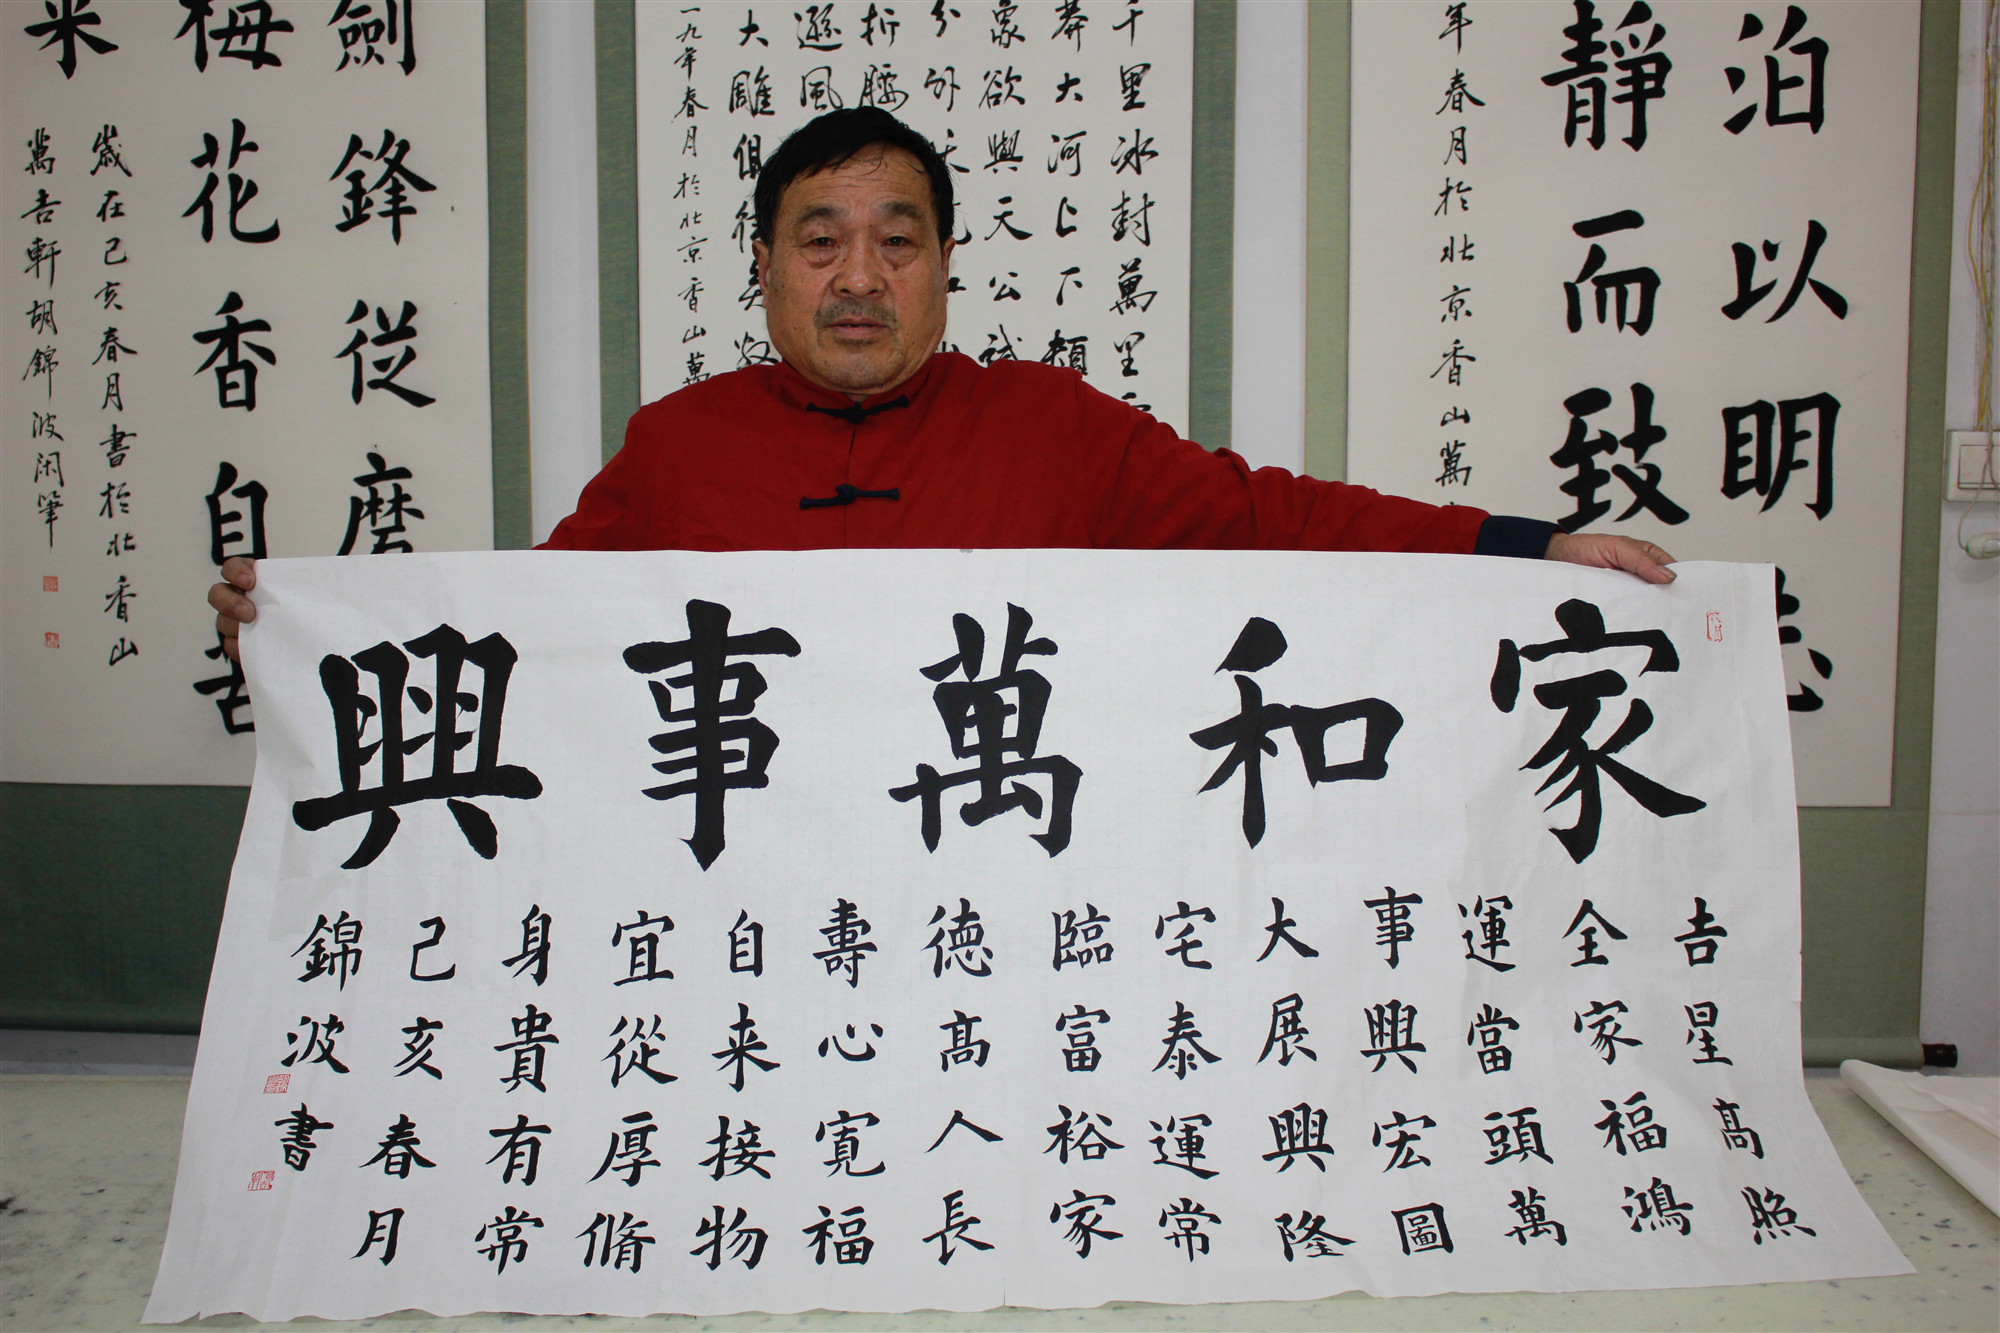 泊以明志
靜而致
年春月於北京香山萬
千里冰封萬里
莽大河上下頓
象欲與天公試
分外
折腰
遜風
大雕俱往矣數
一九年春月於北京香山萬
劍鋒從磨
梅花香自苦
来
歲在己亥春月書於北香山
萬吉軒胡錦波闲筆
家和萬事興
吉星髙照
全家福鴻
運當頭萬
事興宏圖
大展興隆
宅泰運常
臨富裕家
德髙人長
壽心寬福
自来接物
宜從厚脩
身貴有常
己亥春月
錦波書